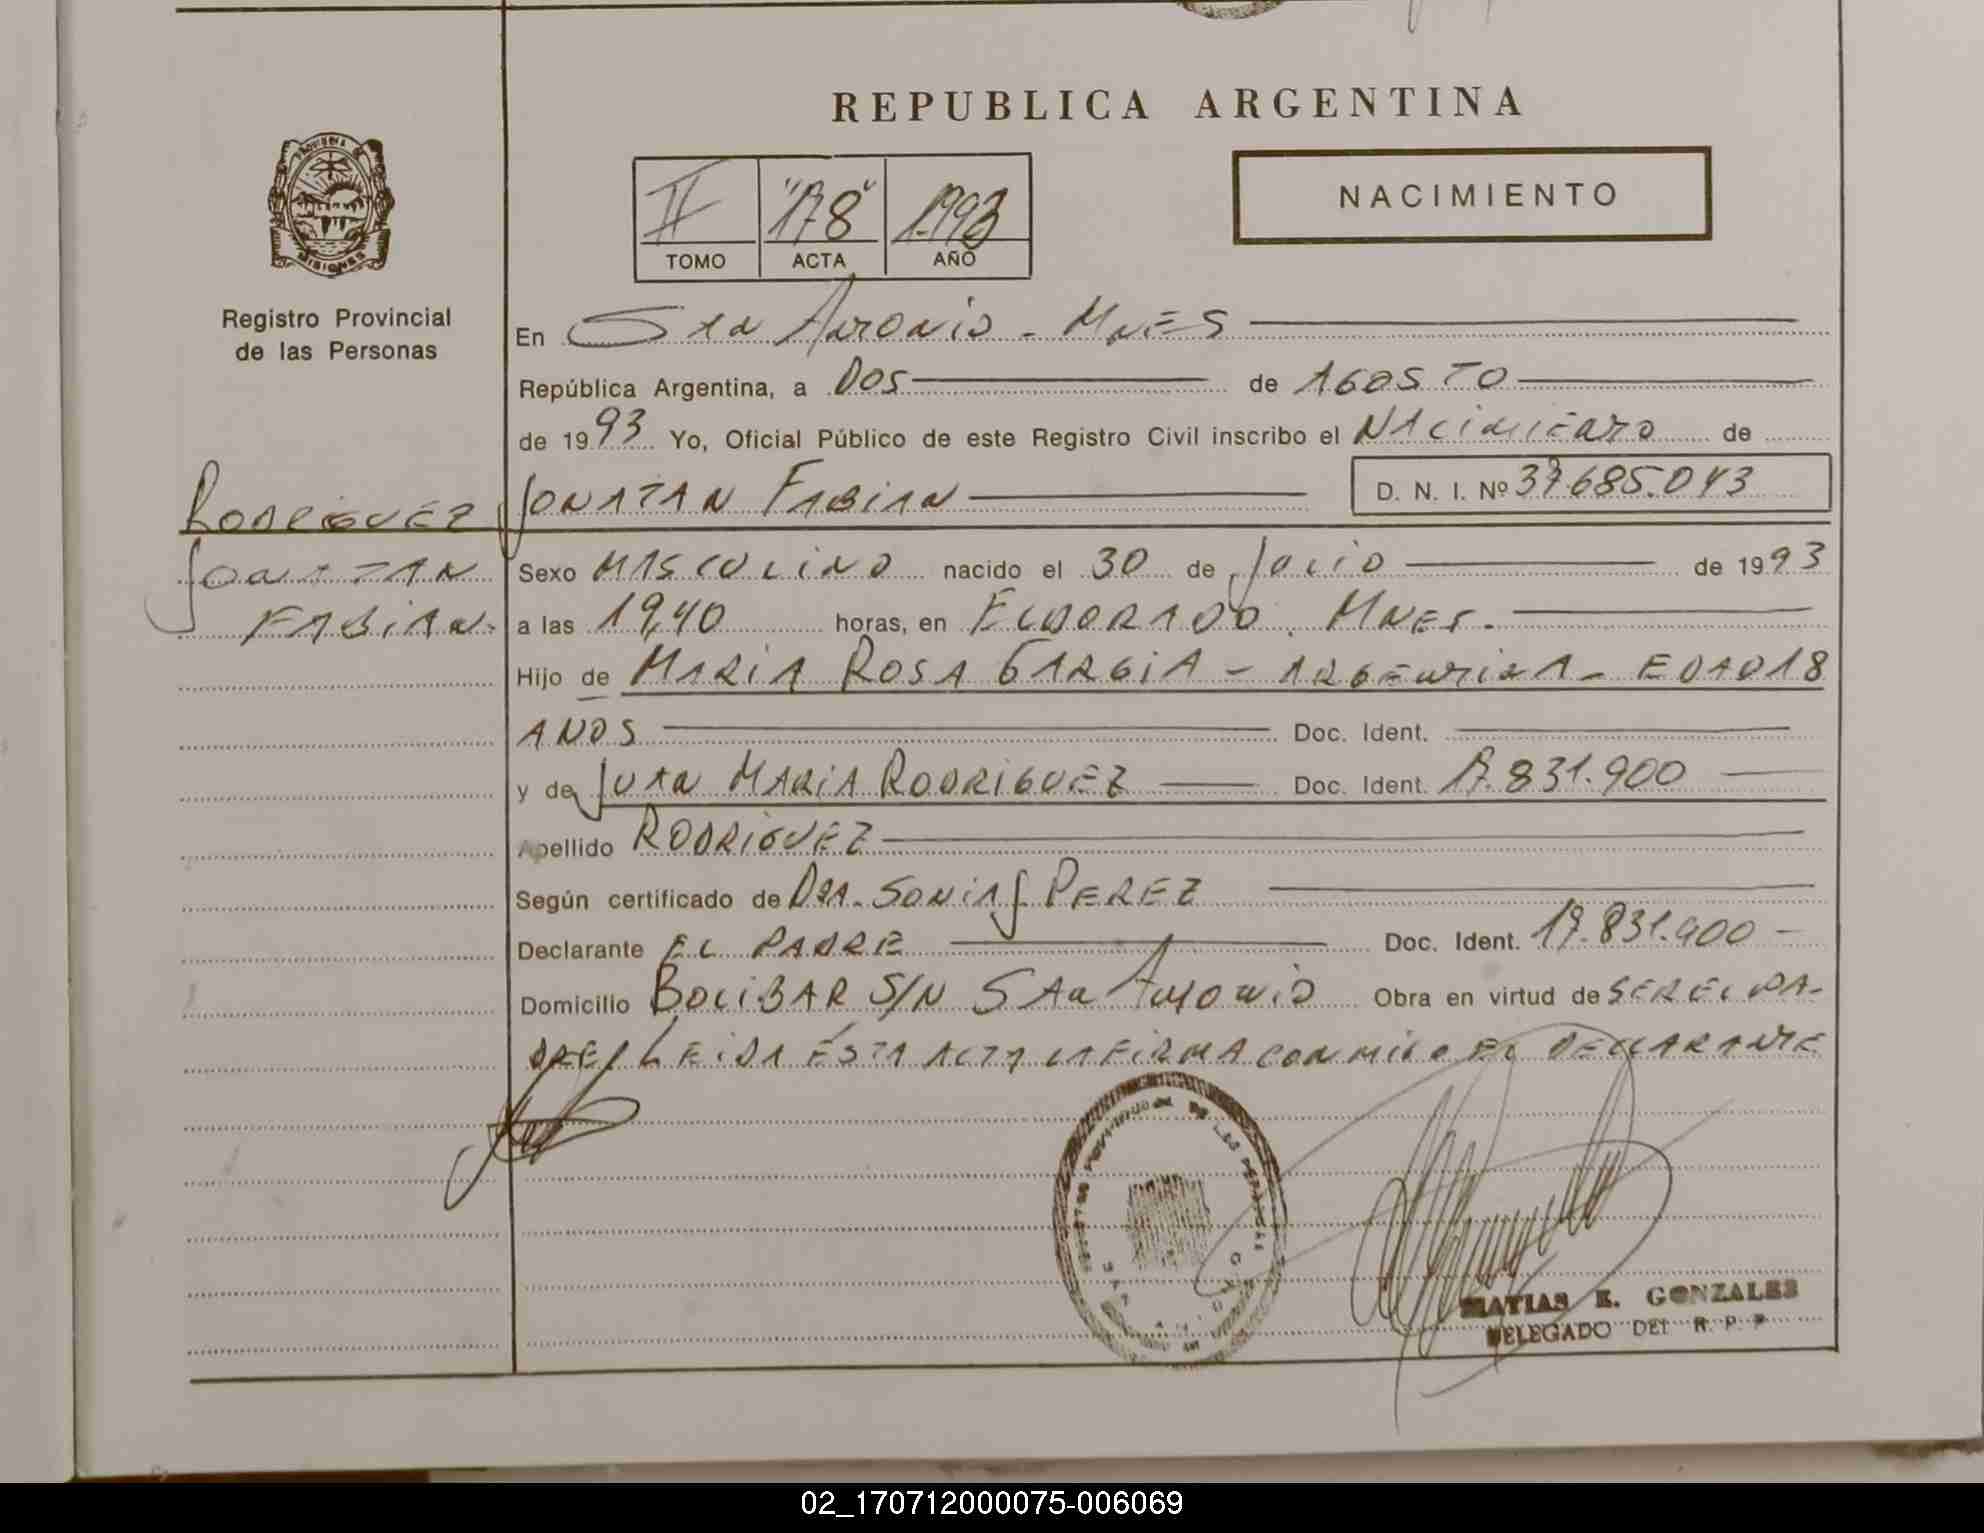 REPUBLICA ARGENTINA
NACIMIENTO
II "178" 1993
TOMO ACTA AÑO
PROVINCIA DE
MISIONES
Registro Provincial
de las Personas
En San Antonio - Mnes
República Argentina, a DOS de AGOSTO
de 1993 Yo, Oficial Público de este Registro Civil inscribo el NACIMIENTO de
RODRIGUEZ JONATAN FABIAN D. N. I. Nº 37.685.043
JONATAN
FABIAN.
Sexo MASCULINO nacido el 30 de JULIO de 1993
a las 19,40 horas, en ELDORADO. MNES.
Hijo de MARIA ROSA GARCIA - ARGENTINA - EDAD 18
AÑOS Doc. Ident.
y de JUAN MARIA RODRIGUEZ Doc. Ident. 17.831.900
Apellido RODRIGUEZ
Según certificado de DRA. SONIA J PEREZ
Declarante EL PADRE Doc. Ident. 17.831.900 -
Domicilio BOLIBAR S/N SAN ANTONIO Obra en virtud de SER EL PA-
DRE LEIDA ESTA ACTA LA FIRMA CONMIGO EL DECLARANTE
MATIAS E. GONZALES
DELEGADO DEL R. P. P.
02_170712000075-006069